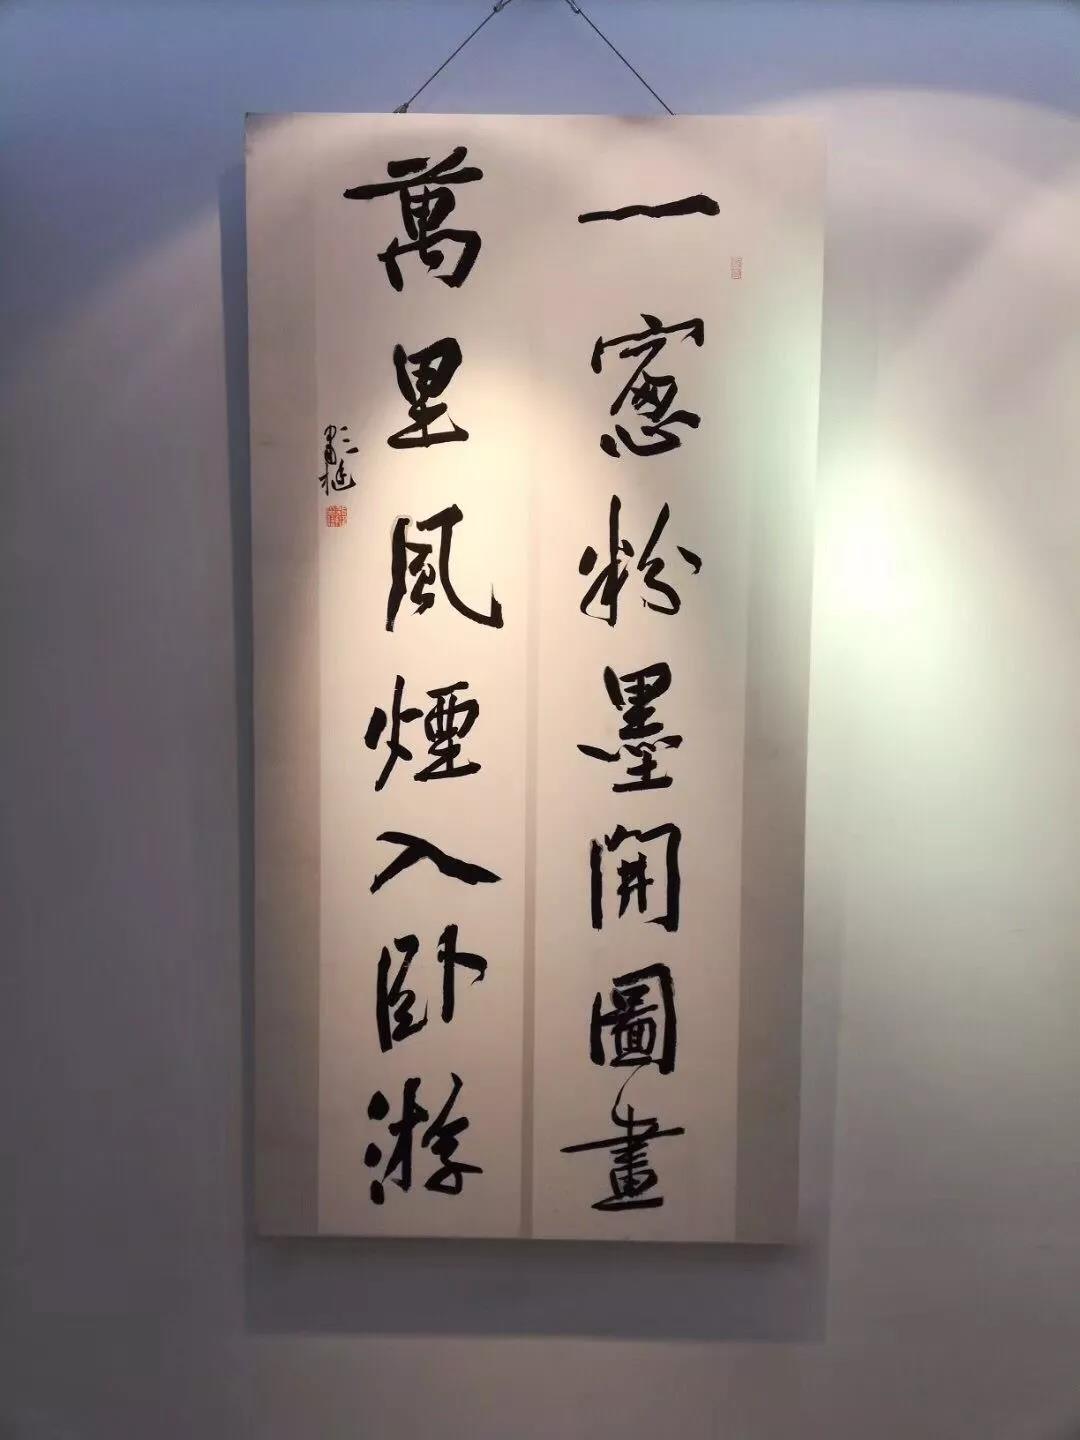 一窻粉墨開圖畫
萬里風煙入卧游